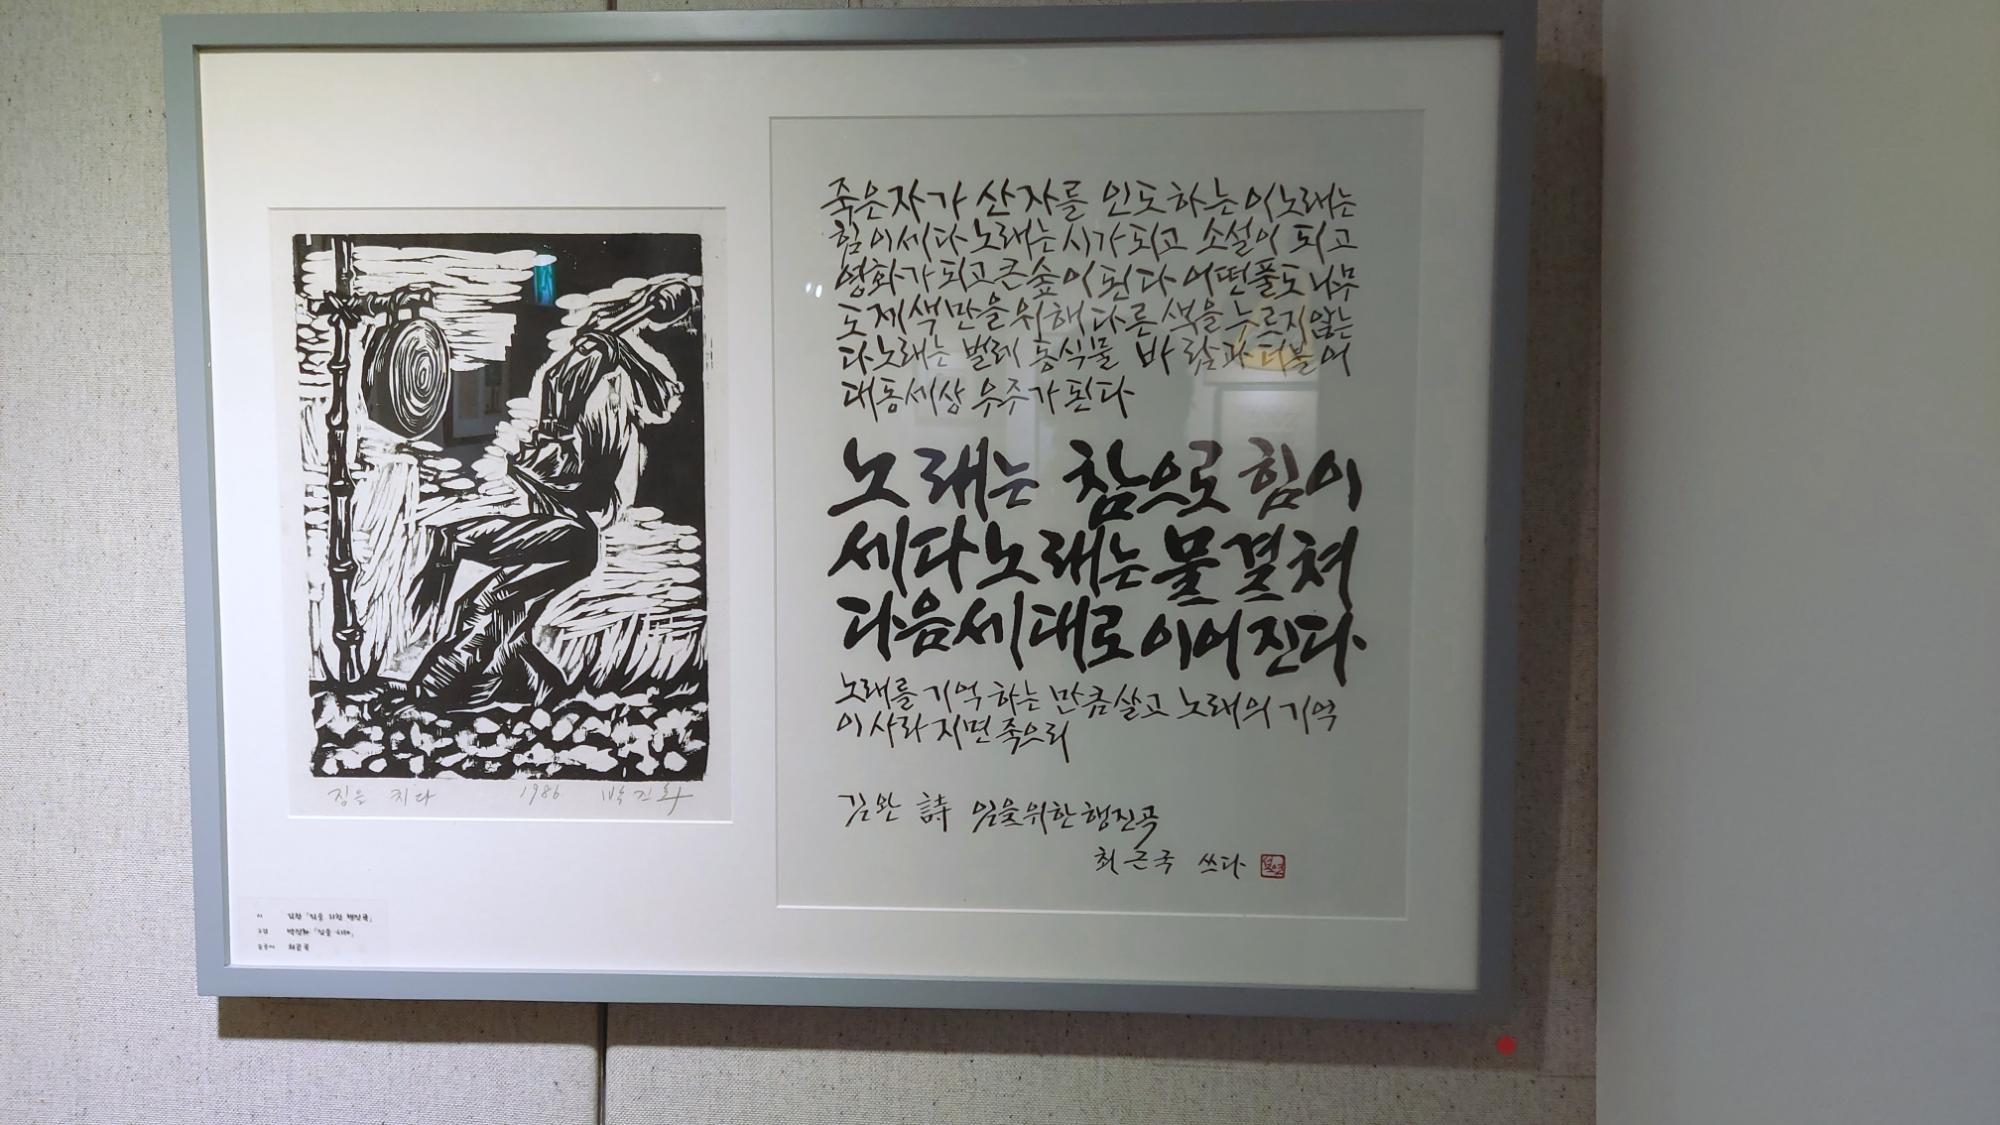 죽은자가 산 자를 인도하는 이노래는
힘이세다 노래는 시가되고 소설이 되고
영화가 되고 큰숲이 된다 어떤풀도 나무
도 제 색만을 위해 다른 색을 누르지않는
다 노래는 벌레 동식물 바람과 더불어
대동세상 우주가 된다
노래는 참으로 힘이
세다 노래는 물결쳐
다음세대로 이어진다.
노래를 기억하는 만큼 살고 노래의 기억
이 사라지면 죽으리
김완 詩 임을위한행진곡
최근국 쓰다
징을 치다 1986 박진화
시 김완 「임을 위한 행진곡」
그림 박진화 「징을 치다」